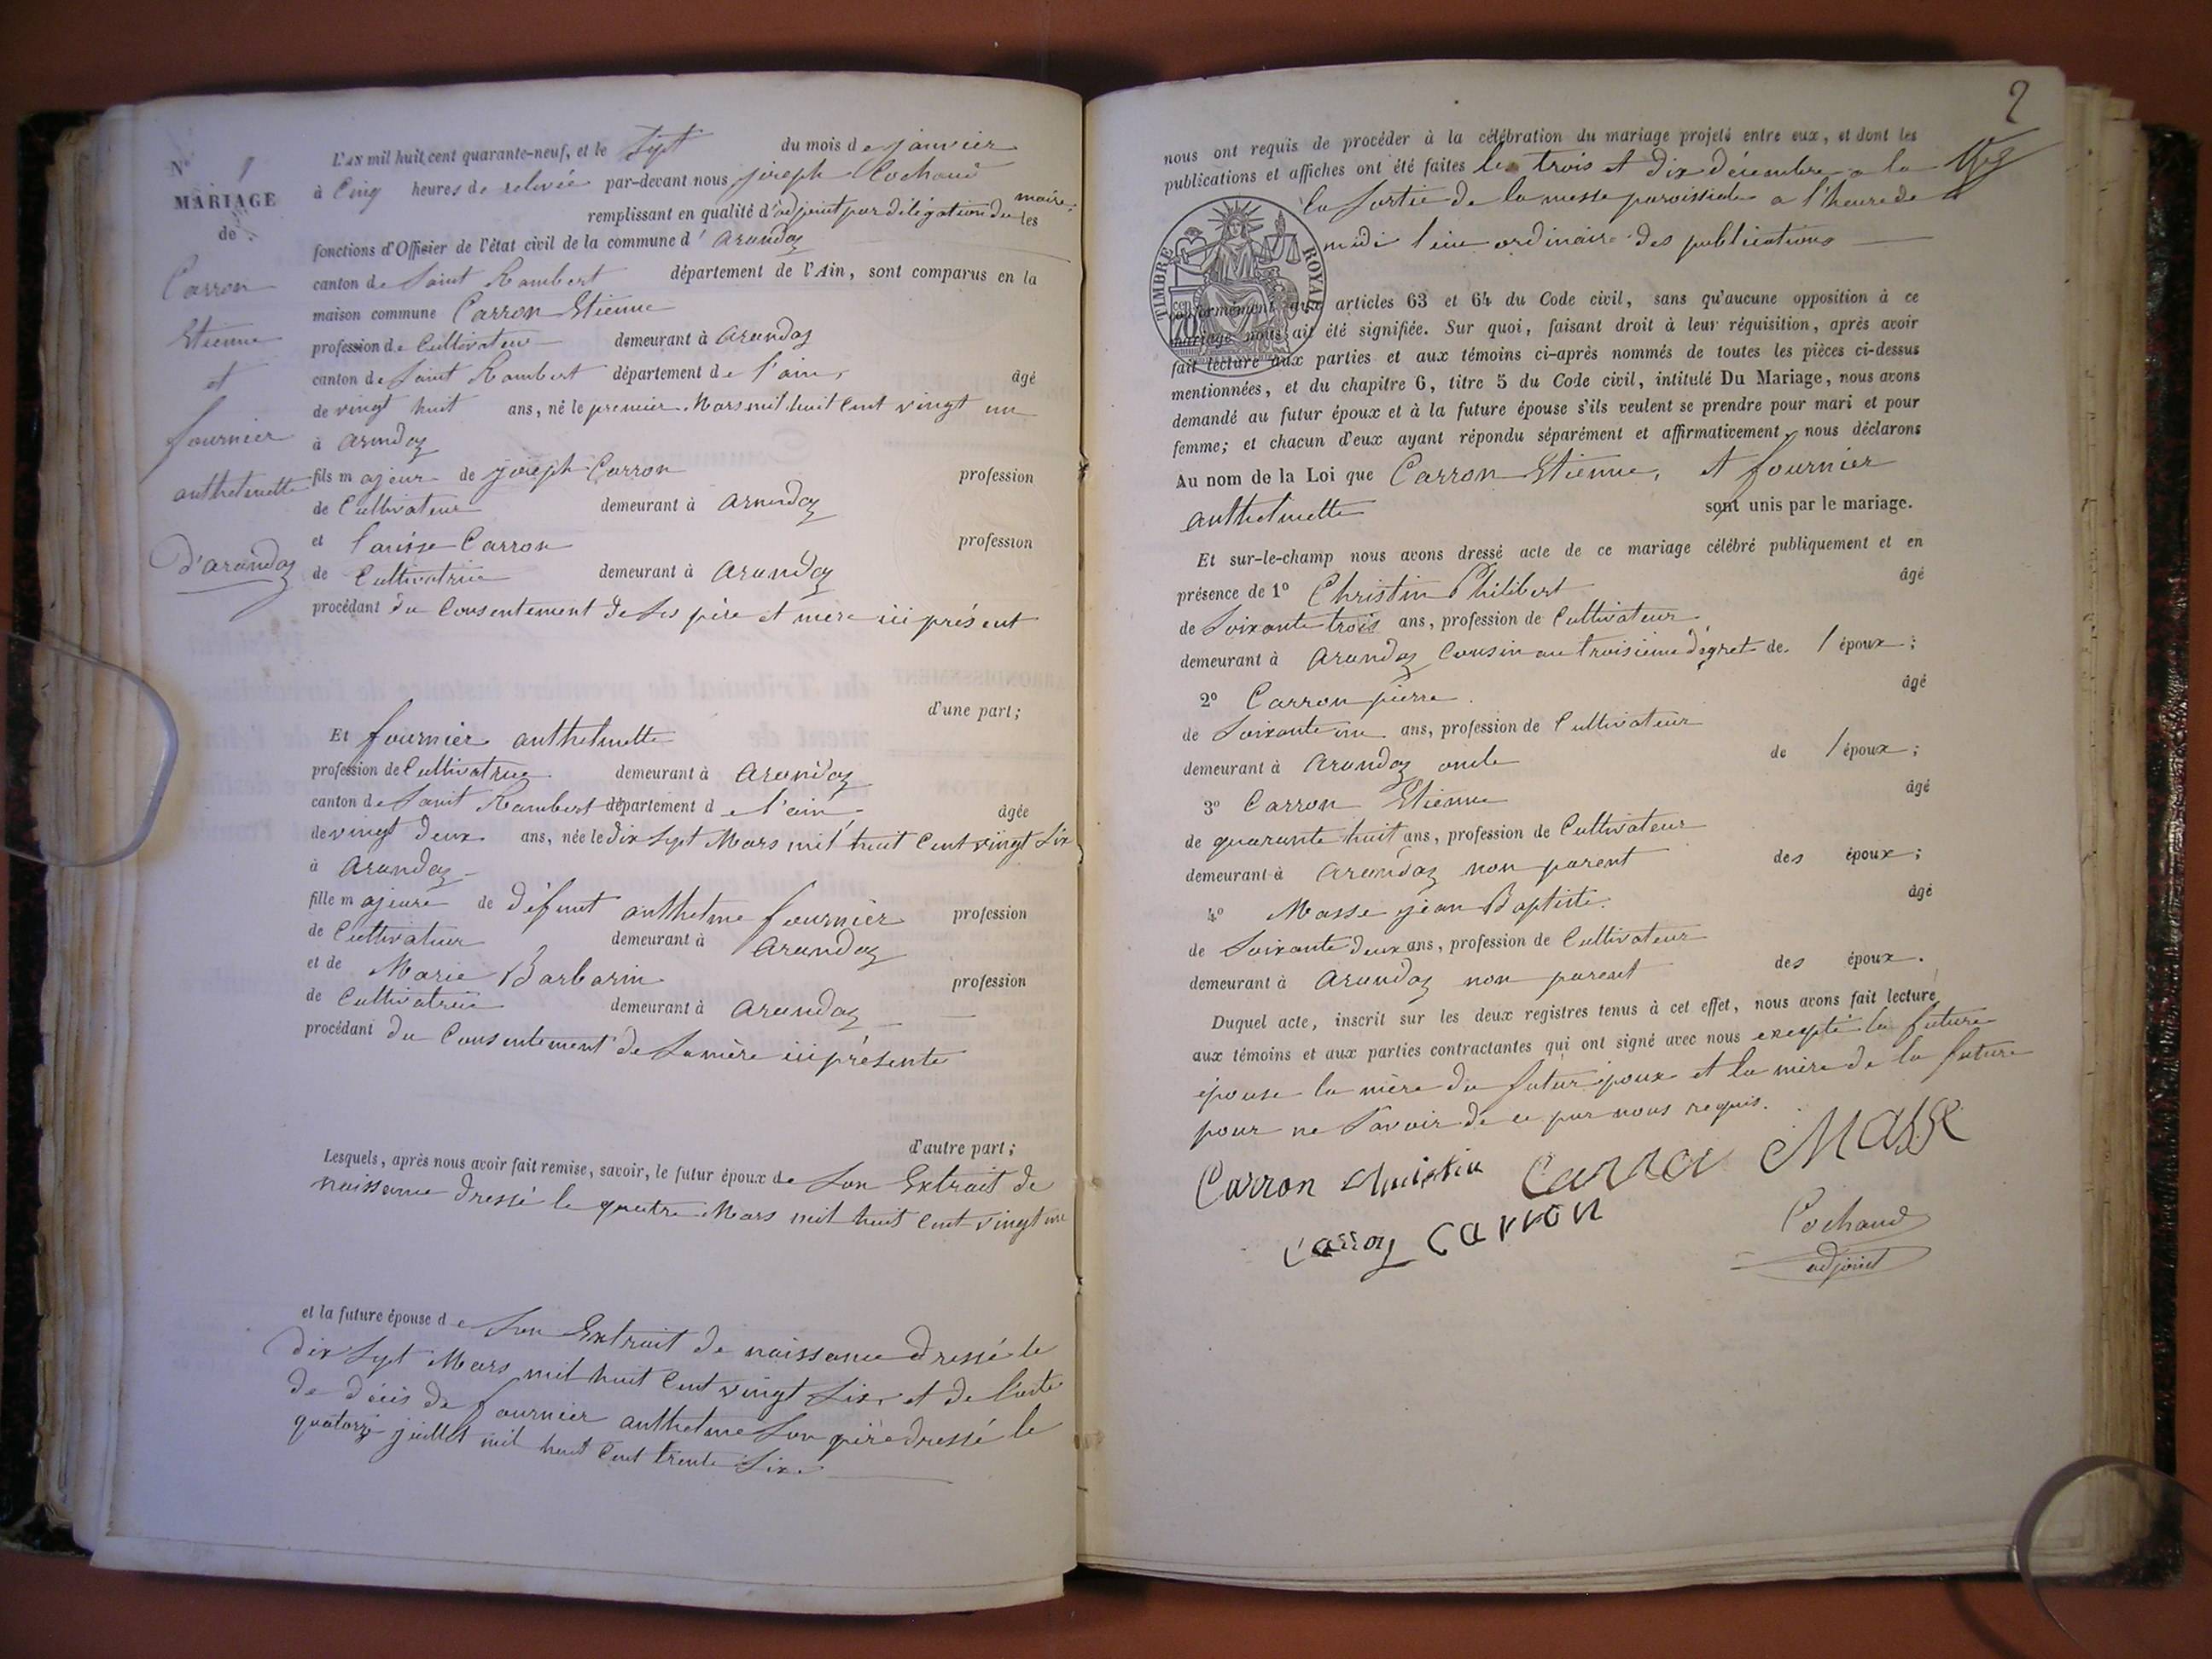 N° 1
MARIAGE
de
Carron
Etienne
et
fournier
anthelmette
d'arandas
L'AN mil huit cent quarante-neuf, et le Sept du mois de janvier
à Cinq heures de relevée par-devant nous joseph Cochaud
remplissant en qualité d'adjoint par délégation du maire les
fonctions d'Officier de l'état civil de la commune d' arandas
canton de Saint Rambert département de l'Ain, sont comparus en la
maison commune Carron Etienne
profession de Cultivateur demeurant à arandas
canton de Saint Rambert département de l'ain, âgé
de vingt huit ans, né le premier Mars mil huit Cent vingt un
à arandas
fils majeur de joseph Carron profession
de Cultivateur demeurant à arandas
et Carron profession
de Cultivatrice demeurant à arandas
procédant du Consentement de Ses père et mere ici présent
d'une part;
Et fournier anthelmette
profession de Cultivatrice demeurant à arandas
canton de Saint Rambert département de l'ain, âgée
de vingt deux ans, née le dix Sept Mars mil huit Cent vingt Six
à arandas
fille majeure de défunt anthelme fournier profession
de Cultivateur demeurant à arandas
et de Marie Barbarin profession
de Cultivatrice demeurant à arandas
procédant du Consentement de Sa mère ici présente
d'autre part;
Lesquels, après nous avoir fait remise, savoir, le futur époux de Son Extrait de
naissance dressé le quatre Mars mil huit Cent vingt un
et la future épouse de Son Extrait de naissance dressé le
dix Sept Mars mil huit Cent vingt Six et de l'acte
de décès de fournier anthelme Son père dressé le
quatorze juillet mil huit Cent trente Six
2
nous ont requis de procéder à la célébration du mariage projeté entre eux, et dont les
publications et affiches ont été faites les trois et dix décembre a la
la Sortie de la messe paroissiale a l'heure de
midi lieu ordinaire des publications
TIMBRE ROYAL
70 cen
conformément aux articles 63 et 64 du Code civil, sans qu'aucune opposition à ce
mariage nous ait été signifiée. Sur quoi, faisant droit à leur réquisition, après avoir
fait lecture aux parties et aux témoins ci-après nommés de toutes les pièces ci-dessus
mentionnées, et du chapitre 6, titre 5 du Code civil, intitulé Du Mariage, nous avons
demandé au futur époux et à la future épouse s'ils veulent se prendre pour mari et pour
femme; et chacun d'eux ayant répondu séparément et affirmativement, nous déclarons
Au nom de la Loi que Carron Etienne, et fournier
anthelmette sont unis par le mariage.
Et sur-le-champ nous avons dressé acte de ce mariage célébré publiquement et en
présence de 1° Christin Philibert âgé
de Soixante trois ans, profession de Cultivateur
demeurant à arandas Cousin au troisième dégret de l'époux;
2° Carron pierre âgé
de Soixante un ans, profession de Cultivateur
demeurant à arandas oncle de l'époux;
3° Carron Etienne âgé
de quarante huit ans, profession de Cultivateur
demeurant à arandas non parent des époux;
4° Masse jean Baptiste. âgé
de Soixante deux ans, profession de Cultivateur
demeurant à arandas non parent des époux.
Duquel acte, inscrit sur les deux registres tenus à cet effet, nous avons fait lecture
aux témoins et aux parties contractantes qui ont signé avec nous excepté la future
épouse la mère du futur époux et la mère de la future
pour ne Savoir de ce par nous requis.
Carron Christin Carron MASSE
Carron Carron
Cochaud
adjoint